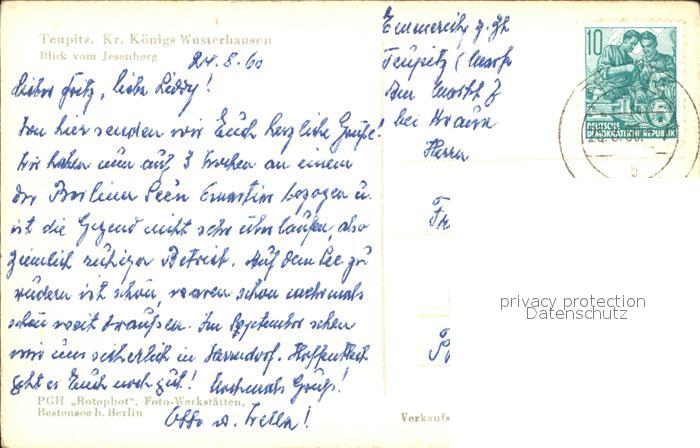 Teupitz, Kr. Königs Wusterhausen
Blick vom Jesenberg
24.8.60
Lieber Fritz, liebe Liddy!
Von hier senden wir Euch herzliche Grüße!
Wir haben nun auf 3 Wochen an einem
der Berliner Seen Quartier bezogen u.
ist die Gegend nicht sehr überlaufen, also
ziemlich ruhiger Betrieb. Auf dem See zu
rudern ist schön, waren schon mehrmals
schön weit draußen. Im September sehen
wir uns sicherlich in
Hoffentlich
geht es Euch noch gut! Nochmals Gruß!
Otto u.
PGH „Rotophot", Foto-Werkstätten,
Bestensee b. Berlin
Emmerich z. Zt.
Teupitz / Mark
Am Markt 7
bei Krause
Herrn
10
DEUTSCHE
DEMOKRATISCHE REPUBLIK
b
Verkaufs
privacy protection
Datenschutz